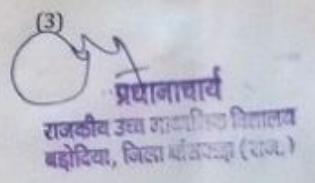 (3)
प्रधानाचार्य
राजकीय उच्च माध्यमिक विद्यालय
बड़ोदिया, जिला बाँसवाड़ा (राज.)